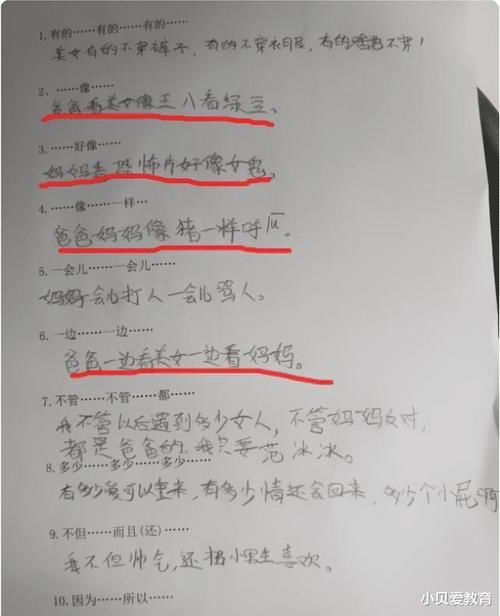 1.有的……有的……有的……
美女有的不穿裤子，有的不穿衣服，有的啥都不穿！
2、……像……
爸爸看美女像王八看绿豆。
3.……好像……
妈妈看恐怖片好像女鬼。
4.……像……一样…
爸爸妈妈像猪一样呼瓜。
5.一会儿……一会儿……
妈妈会儿打人一会儿骂人。
6.一边……一边……
爸爸一边看美女一边看妈妈。
7.不管……不管……都……
我不管以后遇到多少女人，不管妈妈反对，
都是爸爸的，我只要范冰冰。
8.多少……多少……多少……
有多少爱可以重来，有多少情还会回来，多少个小屁
9.不但……而且(还)……
我不但帅气，还招小男生喜欢。
10.因为……所以……
小贝爱教育